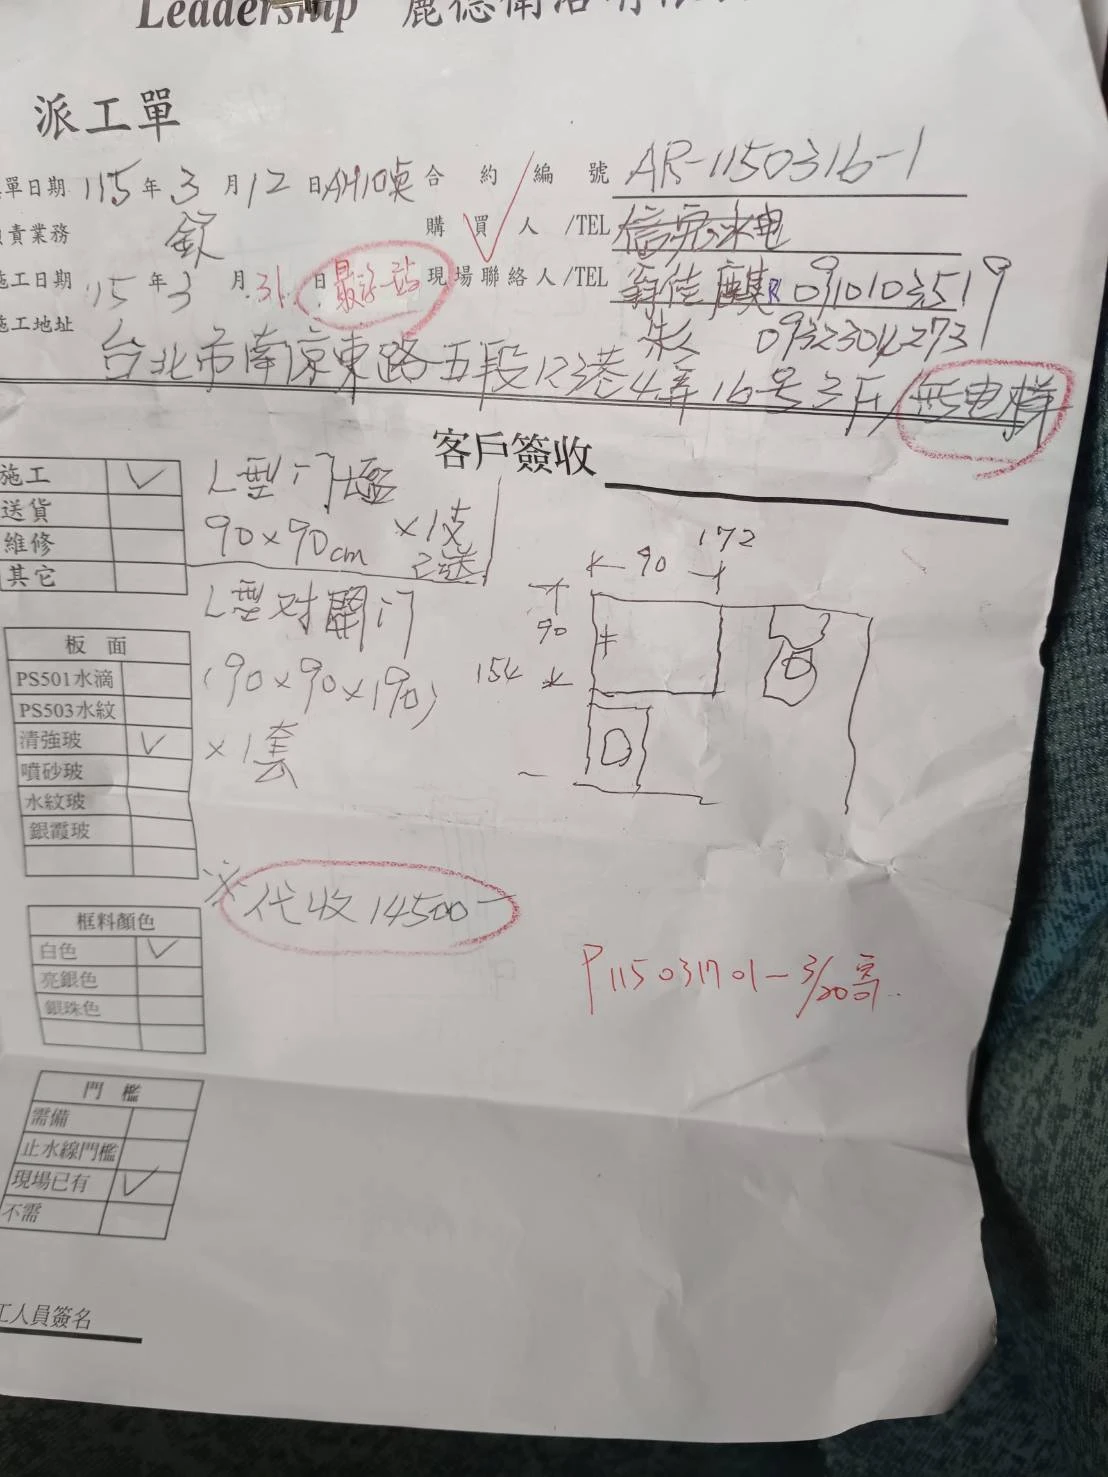 Leadership 麗德衛浴有限
派工單
單日期 115年3月12日AM10點 合約編號 AR-1150316-1
負責業務 欽 購買人/TEL 信宏水电
施工日期 115年3月31日 最後一站 現場聯絡人/TEL 翁佳麒 0910103519
施工地址 朱 0932304273
台北市南京東路五段123巷4弄16号3F 無电梯
客戶簽收
施工 ✓ L型门檻
送貨 90×90cm ×1支
維修 已送
其它
L型对開门
(90×90×190)
×1套
172
90
90
154
板面
PS501水滴
PS503水紋
清強玻 ✓
噴砂玻
水紋玻
銀霞玻
※代收14500-
框料顏色
白色 ✓
亮銀色
銀珠色
P115031701-3/20
門檻
需備
止水線門檻
現場已有 ✓
不需
工人員簽名